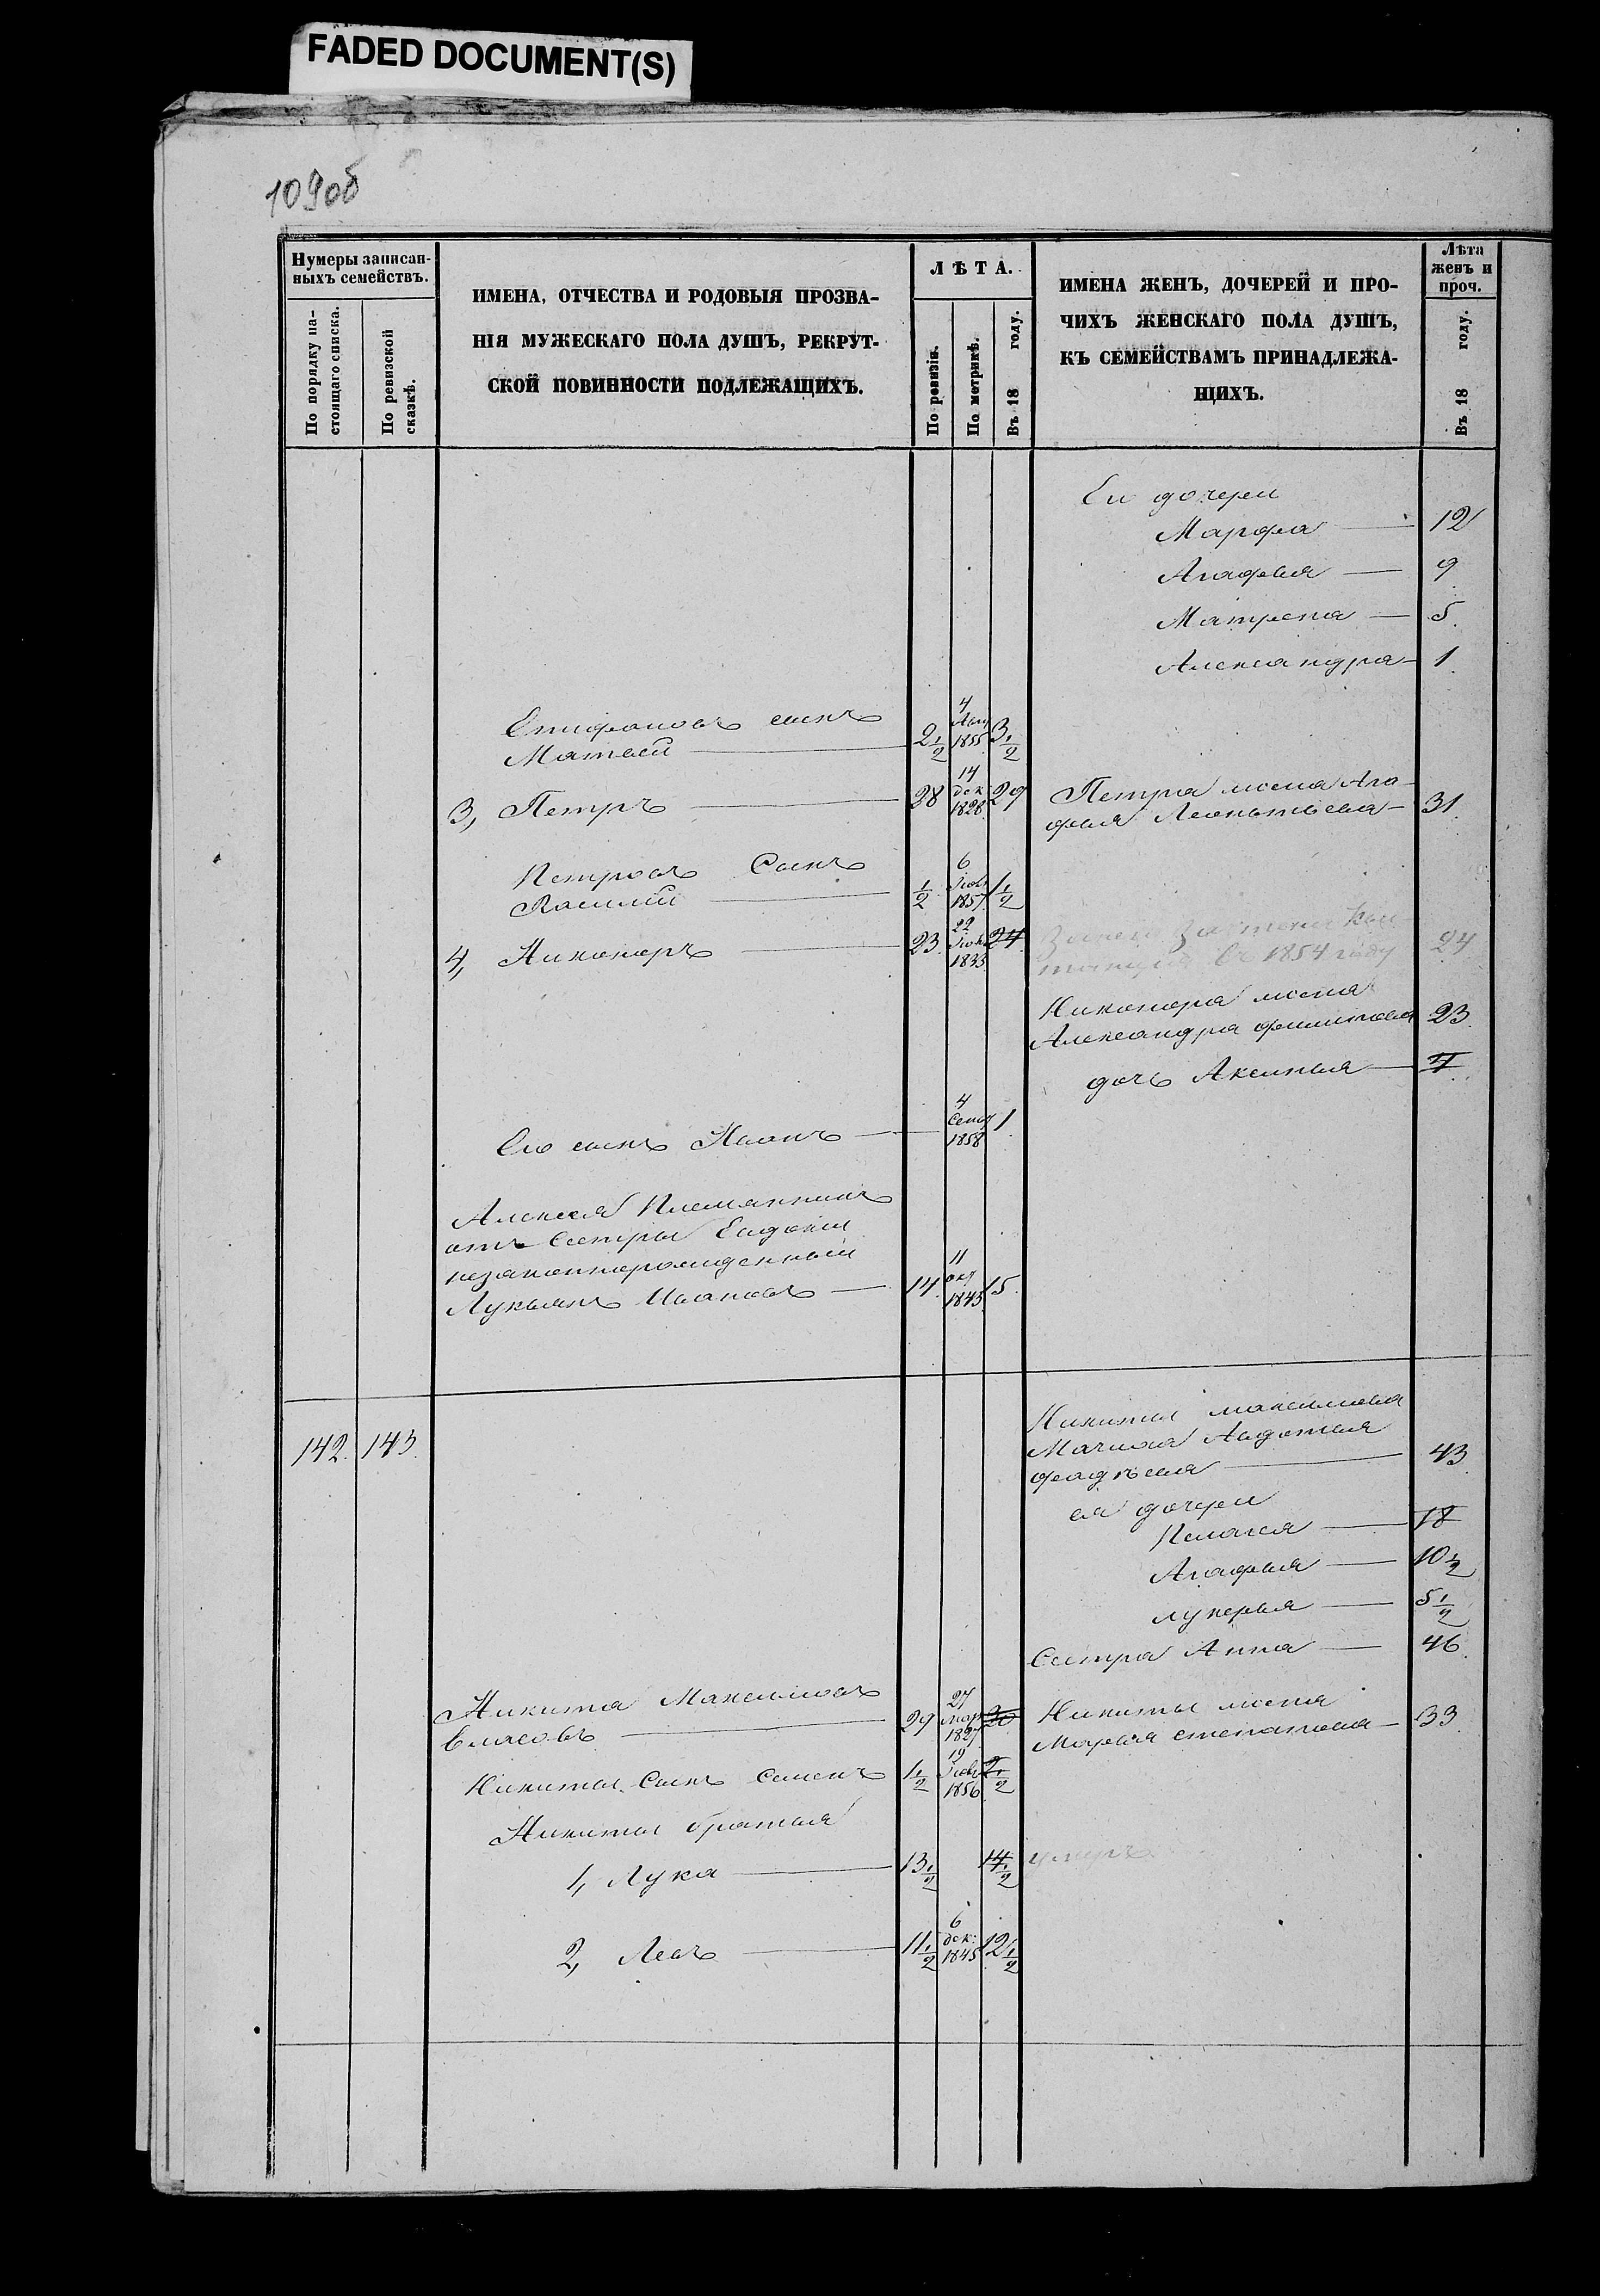 FADED DOCUMENT(S)
109об
Нумеры записан-
ныхъ семействъ.
По порядку на-
стоящаго списка.
По ревизской
сказкѣ.
ИМЕНА, ОТЧЕСТВА И РОДОВЫЯ ПРОЗВА-
НІЯ МУЖЕСКАГО ПОЛА ДУШЪ, РЕКРУТ-
СКОЙ ПОВИННОСТИ ПОДЛЕЖАЩИХЪ.
ЛѢТА.
По ревизіи.
По метрикѣ.
Въ 18 году.
ИМЕНА ЖЕНЪ, ДОЧЕРЕЙ И ПРО-
ЧИХЪ ЖЕНСКАГО ПОЛА ДУШЪ,
КЪ СЕМЕЙСТВАМЪ ПРИНАДЛЕЖА-
ЩИХЪ.
Лѣта
женъ и
проч.
Въ 18 году.
Еи дочери
Марфа — 12
Агафья — 9
Матрена — 5
Александра — 1
Епифановъ сынъ
Матвей — 2 1/2 4 Авг 1855 3 1/2
3, Петръ — 28 14 дек 1828 29
Петра жена Ага-
фья Леонтьева — 31
Петровъ Сынъ
Василий — 1/2 6 1857 1 1/2
4, Никаноръ — 23 22 1833 24
въ 1854 году 24
Никанора жена
Александра филипова 23
дочь Аксинья —
Его сынъ Иванъ — 4 Сент 1858 1
Алексея Племянникъ
отъ Сестры Евдокии
незаконнорожденный
Лукьянъ Ивановъ — 14 11 окт 1843 15
142. 143.
Никиты максимова
Мачиха Авдотья
фадѣева — 43
ея дочери
Пелагея — 18
Агафья — 10 1/2
лукерья — 5 1/2
Сестра Анна — 46
Никита Максимовъ
Власовъ — 29 27 мар 1827 30
Никиты жена
Марья степанова — 33
Никиты Сынъ Семенъ 1 1/2 19 1856 2 1/2
Никиты братья
1, Лука — 13 1/2 14 1/2 умеръ
2, Левъ — 11 1/2 6 дек: 1845 12 1/2